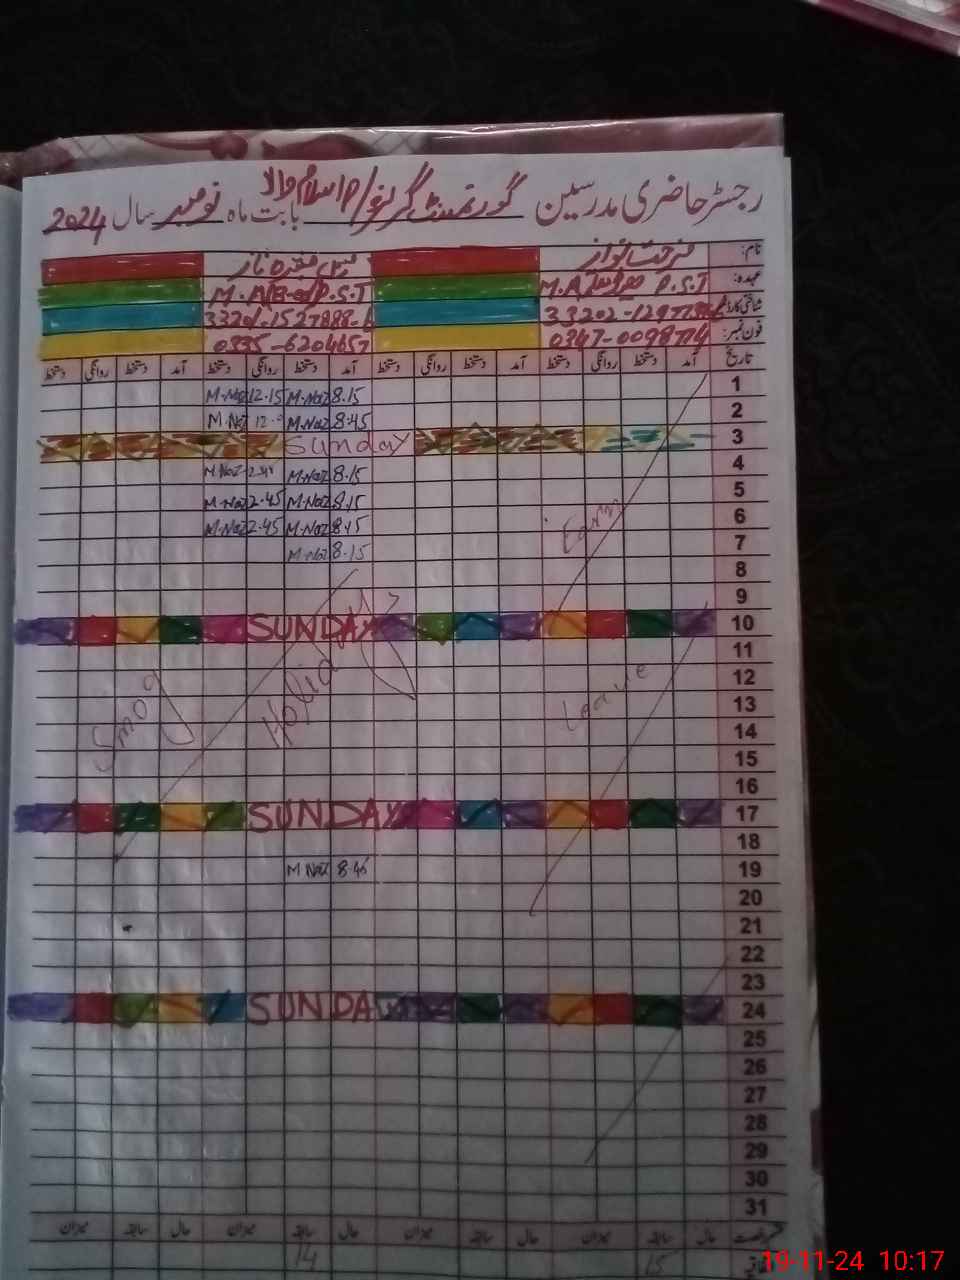 رجسٹر حاضری مدرسین گورنمنٹ گرلز / اسلام والا بابت ماہ نومبر سال 2024
نام: فرحت نواز
عہدہ: M.A P.S.T M.A/B-ed P.S.T
شناختی کارڈ 33202- 33201-1527888-
فون نمبر: 0347-0098774 0335-6204657
تاریخ آمد دستخط روانگی دستخط آمد دستخط روانگی دستخط آمد دستخط روانگی دستخط
1 8.15 M.Naz 12.15 M.Naz
2 8.45 M.Naz 12. M.Naz
3 Sunday
4 8.15 M.Naz M.Naz
5 8.15 M.Naz 2.45 M.Naz
6 8.15 M.Naz 2.45 M.Naz
7 8.15 M.Naz
8
9
10 SUNDAY
11
12
13
14
15
16
17 SUNDAY
18
19 8.45 M Naz
20
21
22
23
24 SUNDA
25
26
27
28
29
30
31
Earn
Leave
Smog Holiday
رخصت حال سابقہ میزان حال سابقہ میزان حال سابقہ میزان
15 14
19-11-24 10:17